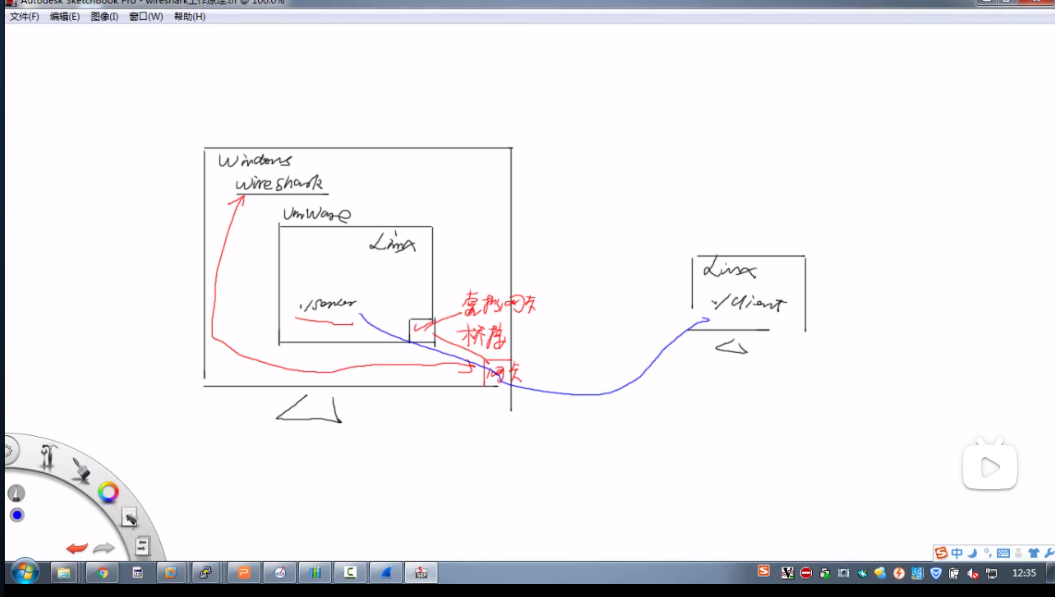 Autodesk SketchBook Pro - wireshark工作原理.tif @ 100.0%
文件(F) 编辑(E) 图像(I) 窗口(W) 帮助(H)
Windows
wireshark
VmWare
Linx
./server
虚拟网卡
桥接
网卡
Linux
./client
中
12:35